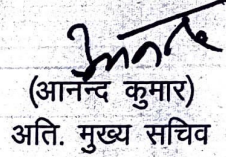 (आनन्द कुमार)
अति. मुख्य सचिव